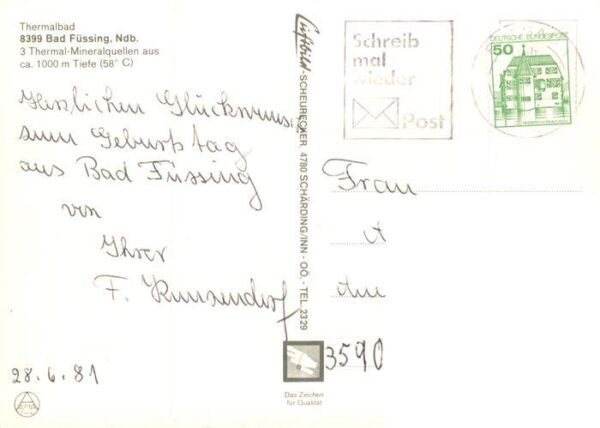 Thermalbad
8399 Bad Füssing, Ndb.
3 Thermal-Mineralquellen aus
ca. 1000 m Tiefe (58° C)
Herzlichen Glückwunsch
zum Geburtstag
aus Bad Füssing
von
Ihrer
F. Kunzendorf
28.6.81
Luftbild - SCHEURECKER, 4780 SCHÄRDING/INN - OÖ. - TEL. 2329
Das Zeichen
für Qualität
Schreib
mal
wieder
Post
DEUTSCHE BUNDESPOST
50
Frau
3590